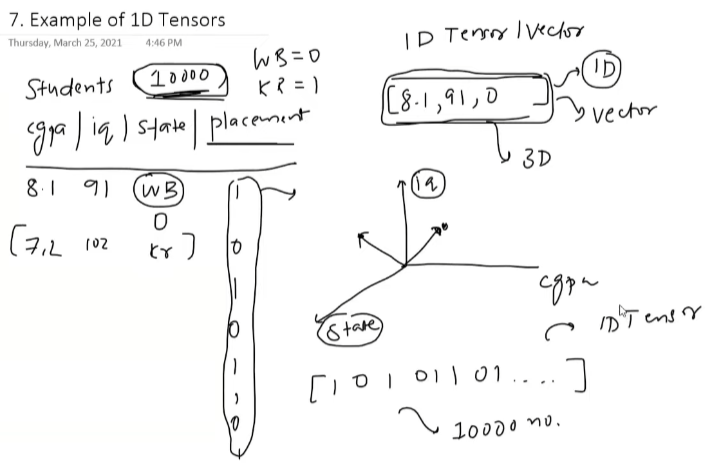 7. Example of 1D Tensors
Thursday, March 25, 2021 4:46 PM
Students 10000
WB = 0
KR = 1
cgpa | iq | state | placement
8.1 91 WB 1
0
[7.2 102 Kr] 0
1
0
1
,
0
1D Tensor / Vector
[8.1, 91, 0 ]
1D
vector
3D
iq
cgpa
State
1D Tensor
[1 0 1 0 1 1 0 1 .... ]
10000 no.